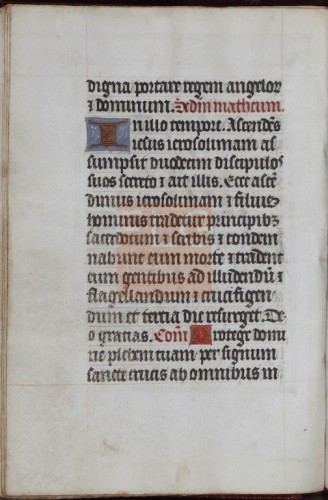 digna portare regem angelor
⁊ dominum. Sedm matheum.
In illo tempore. Ascendēs
iesus ierosolimam as
sumpsit duodecim discipulos
suos secreto ⁊ ait illis. Ecce ascē
dimus ierosolimam ⁊ filius
hominis tradetur principibꝫ
sacerdotum ⁊ scribis ⁊ condem
nabunt eum morte ⁊ tradent
eum gentibus ad illudendū ⁊
flagellandum ⁊ crucifigen
dum et tertia die resurget. De
o gratias. Com̄ Protege domi
ne plebem tuam per signum
sancte crucis ab omnibus in